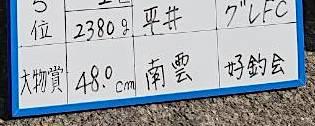 位 2380g 平井 グレFC
大物賞 48.0cm 南雲 好釣会